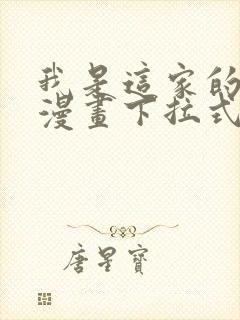 我是這家的
漫畫下拉式
唐星寶